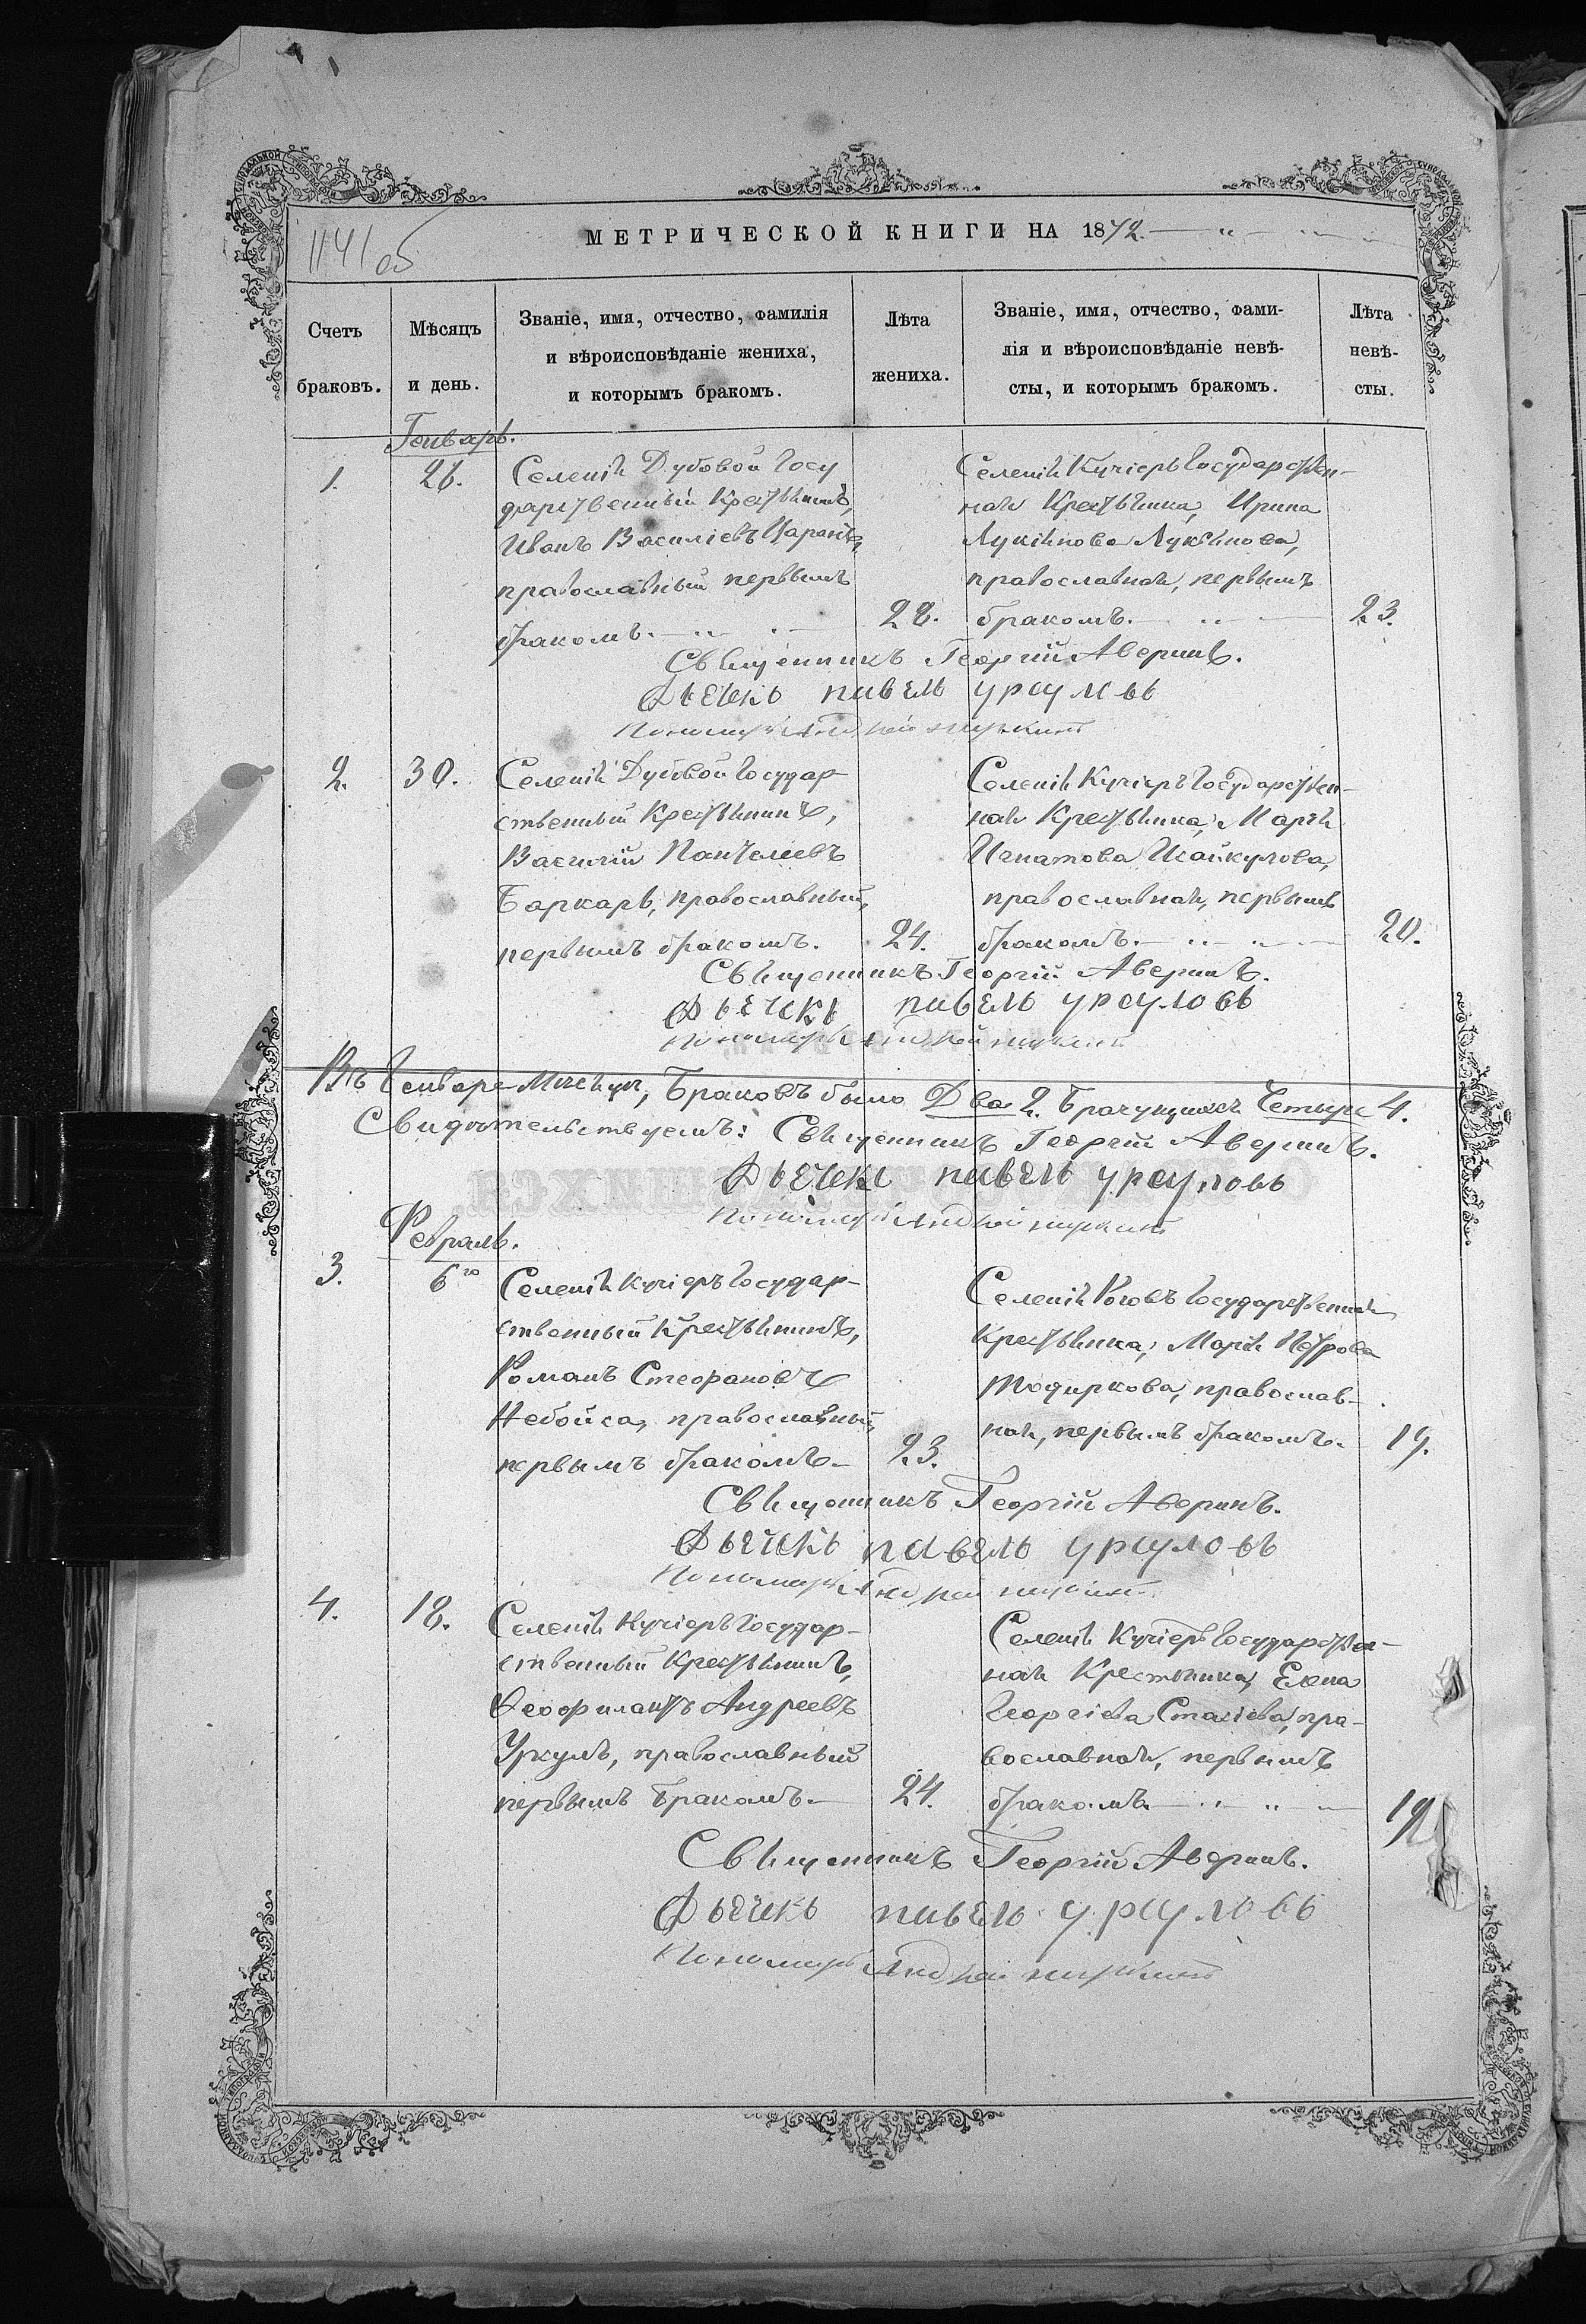 1141 об
МЕТРИЧЕСКОЙ КНИГИ НА 1872.
Счетъ браковъ.
Мѣсяцъ и день.
Званіе, имя, отчество, фамилія и вѣроисповѣданіе жениха, и которымъ бракомъ.
Лѣта жениха.
Званіе, имя, отчество, фамилія и вѣроисповѣданіе невѣсты, и которымъ бракомъ.
Лѣта невѣсты.
Генварь.
1.
26.
Селенія Дубовой Госу
дарственный Крестьянинъ,
Иванъ Василіевъ Царанъ,
православный первымъ
бракомъ.
28.
Селенія Кучіеръ Государствен-
ная Крестьянка, Ирина
Лукіянова Лукіянова,
православная, первымъ
бракомъ.
23.
Священникъ Георгій Аверинъ.
Дьечекъ павелъ урсуловъ
Пономарь Андрей
2.
30.
Селенія Дубовой Государ-
ственный Крестьянинъ,
Василій Пантелеевъ
Баркарь, православный,
первымъ бракомъ.
24.
Селенія Кучіеръ Государствен-
ная Крестьянка, Марія
Игнатова
православная, первымъ
бракомъ.
20.
Священникъ Георгій Аверинъ.
Дьечекъ павелъ урсуловъ
Пономарь Андрей
Въ Генваре месяце, Браковъ было Два 2. Брачущихся Четыре 4.
Свидѣтельствуемъ: Священникъ Георгій Аверинъ.
Дьечекъ павелъ урсуловъ
Пономарь Андрей
Февраль.
3.
6го
Селенія Кучіеръ Государ-
ственный Крестьянинъ,
Романъ Стефановъ
Небойса, православный,
первымъ бракомъ
23.
Селенія Роговъ Государственная
Крестьянка, Марія Петрова
Тодиркова, православ-
ная, первымъ бракомъ.
19.
Священникъ Георгій Аверинъ.
Дьечекъ павелъ урсуловъ
Пономарь Андрей
4.
18.
Селенія Кучіеръ Государ-
ственный Крестьянинъ,
Феофилактъ Андреевъ
Уркумъ, православный
первымъ бракомъ
24.
Селенія Кучіеръ Государствен-
ная Крестьянка, Елена
Георгіева Стасіева, пра-
вославная, первымъ
бракомъ
19
Священникъ Георгій Аверинъ.
Дьечекъ павелъ урсуловъ
Пономарь Андрей